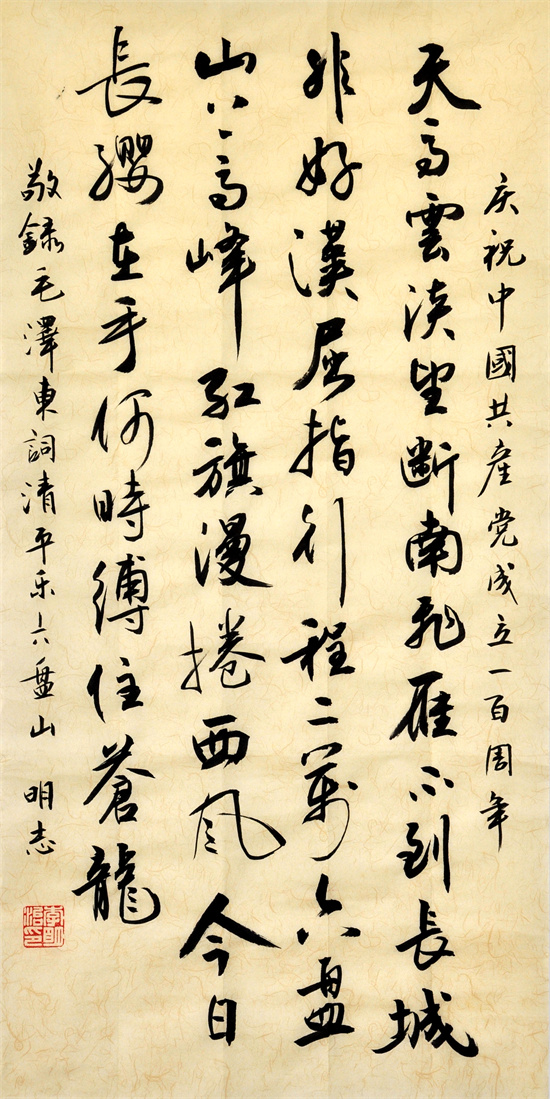 庆祝中國共產党成立一百周年
天高雲淡望斷南飛雁不到長城
非好漢屈指行程二萬六盘
山上高峰紅旗漫捲西風今日
長纓在手何時縛住蒼龍
敬錄毛澤東詞清平乐六盘山 明志